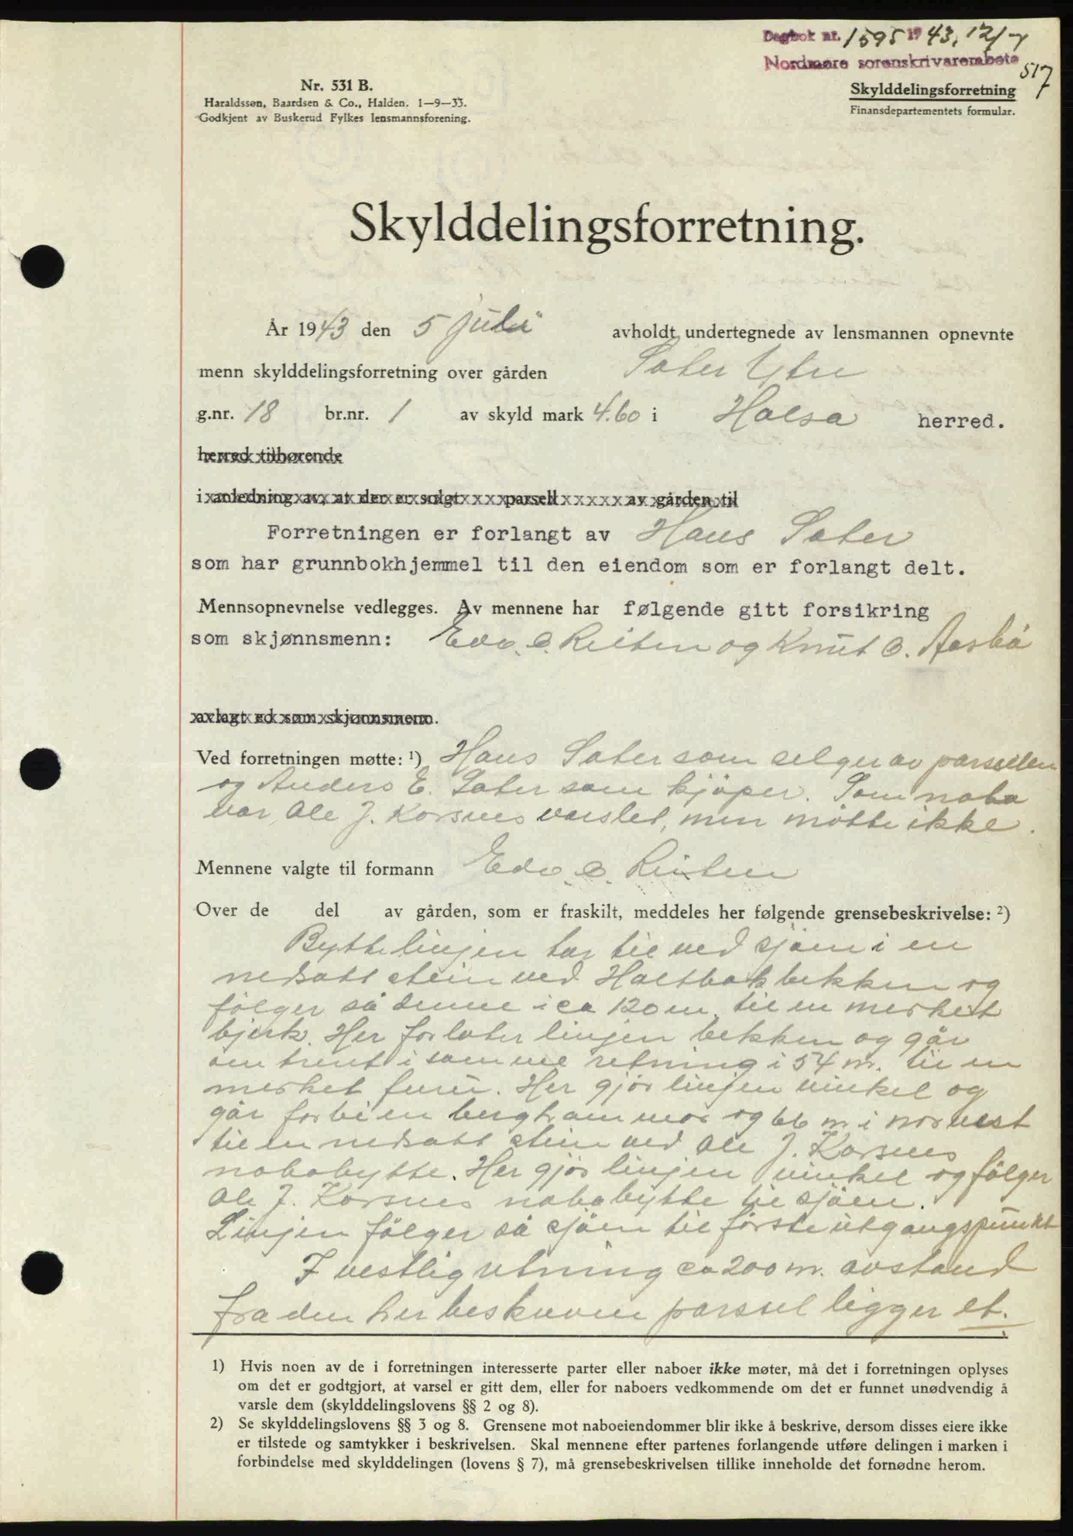 Dagbok nr. 1595 1943, 12/7
Nordmøre sorenskrivarembete
517
Nr. 531 B.
Haraldssøn, Baardsen & Co., Halden. 1-9-33.
Godkjent av Buskerud Fylkes lensmannsforening.
Skylddelingsforretning
Finansdepartementets formular.
Skylddelingsforretning.
År 1943 den 5 juli avholdt undertegnede av lensmannen opnevnte
menn skylddelingsforretning over gården Sæter Ytre
g.nr. 18 br.nr. 1 av skyld mark 4.60 i Halsa herred.
herred tilhørende
i anledning av, at der er solgt parsell av gården til
Forretningen er forlangt av Hans Sæter
som har grunnbokhjemmel til den eiendom som er forlangt delt.
Mennsopnevnelse vedlegges. Av mennene har følgende gitt forsikring
som skjønnsmenn: Edv. C. Reiten og Knut O. Aasbø
avlagt ed som skjønnsmenn.
Ved forretningen møtte: 1) Hans Sæter som selger av parsellen
og Anders E. Sæter som kjøper. Som nabo
var Ole J. Korsnes varslet, men møtte ikke.
Mennene valgte til formann Edv. C. Reiten
Over de del av gården, som er fraskilt, meddeles her følgende grensebeskrivelse: 2)
Byttelinjen tar til ved sjøen i en
nedsatt stein ved Holtbakbekken og
følger så denne i ca 120 m. til en merket
bjerk. Her forlater linjen bekken og går
omtrent i samme retning i 54 m. til en
merket furu. Her gjør linjen vinkel og
går forbi en berghammer og 66 m i norvest
til en nedsatt stein ved Ole J. Korsnes
nabobytte. Her gjør linjen vinkel og følger
Ole J. Korsnes nabobytte til sjøen.
Linjen følger så sjøen til første utgangspunkt
I vestlig retning ca 200 m. avstand
fra den her beskreven parsel ligger et.
1) Hvis noen av de i forretningen interesserte parter eller naboer ikke møter, må det i forretningen oplyses
om det er godtgjort, at varsel er gitt dem, eller for naboers vedkommende om det er funnet unødvendig å
varsle dem (skylddelingslovens §§ 2 og 8).
2) Se skylddelingslovens §§ 3 og 8. Grensene mot naboeiendommer blir ikke å beskrive, dersom disses eiere ikke
er tilstede og samtykker i beskrivelsen. Skal mennene efter partenes forlangende utføre delingen i marken i
forbindelse med skylddelingen (lovens § 7), må grensebeskrivelsen tillike inneholde det fornødne herom.